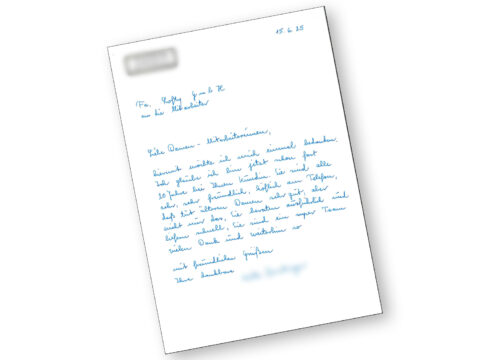 15.6.25
Fa. G m b H
an die Mitarbeiter
Liebe Damen - Mitarbeiterinnen,
hiermit möchte ich mich einmal bedanken.
Ich glaube ich bin jetzt schon fast
20 Jahre bei Ihnen Kundin. Sie sind alle
sehr, sehr freundlich, höflich am Telefon,
das tut älteren Damen sehr gut, aber
nicht nur das, Sie beraten ausführlich und
liefern schnell, Sie sind ein super Team
vielen Dank und weiterhin so
mit freundlichen Grüßen
Ihre dankbare